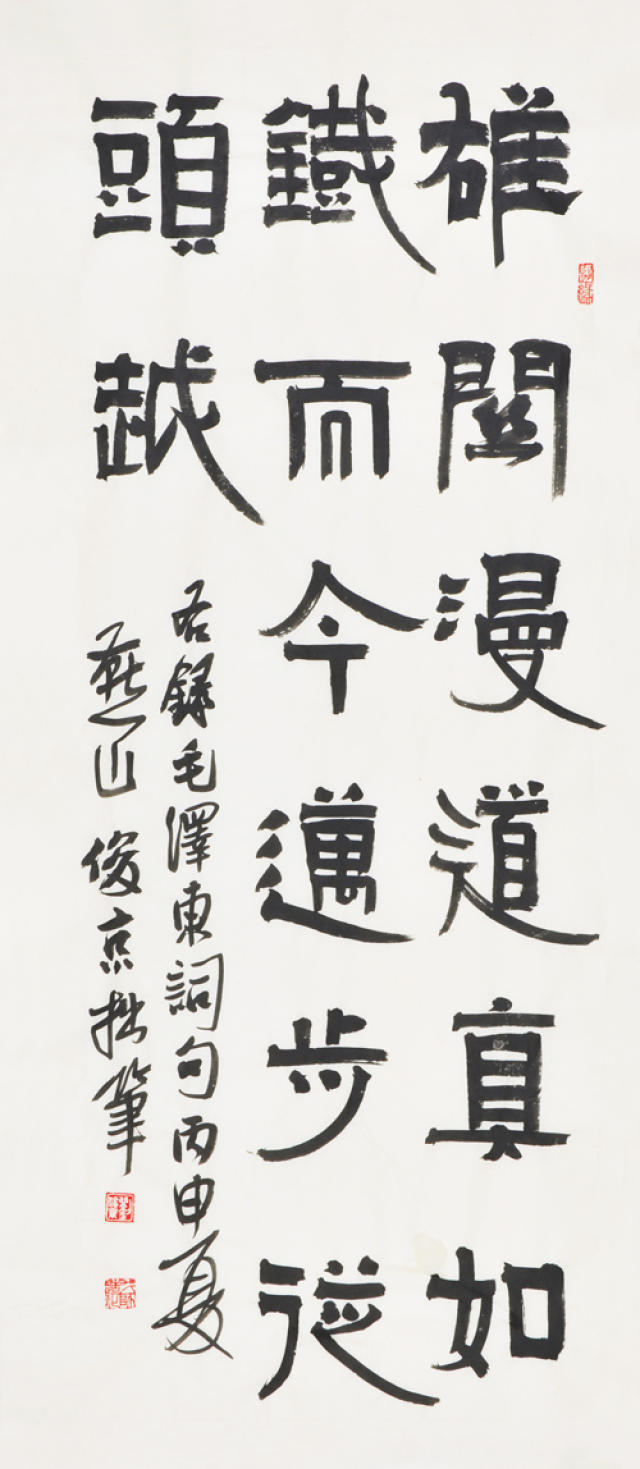 雄關漫道真如
鐵而今邁步從
頭越
右録毛澤東詞句丙申夏
燕山俊京拙筆